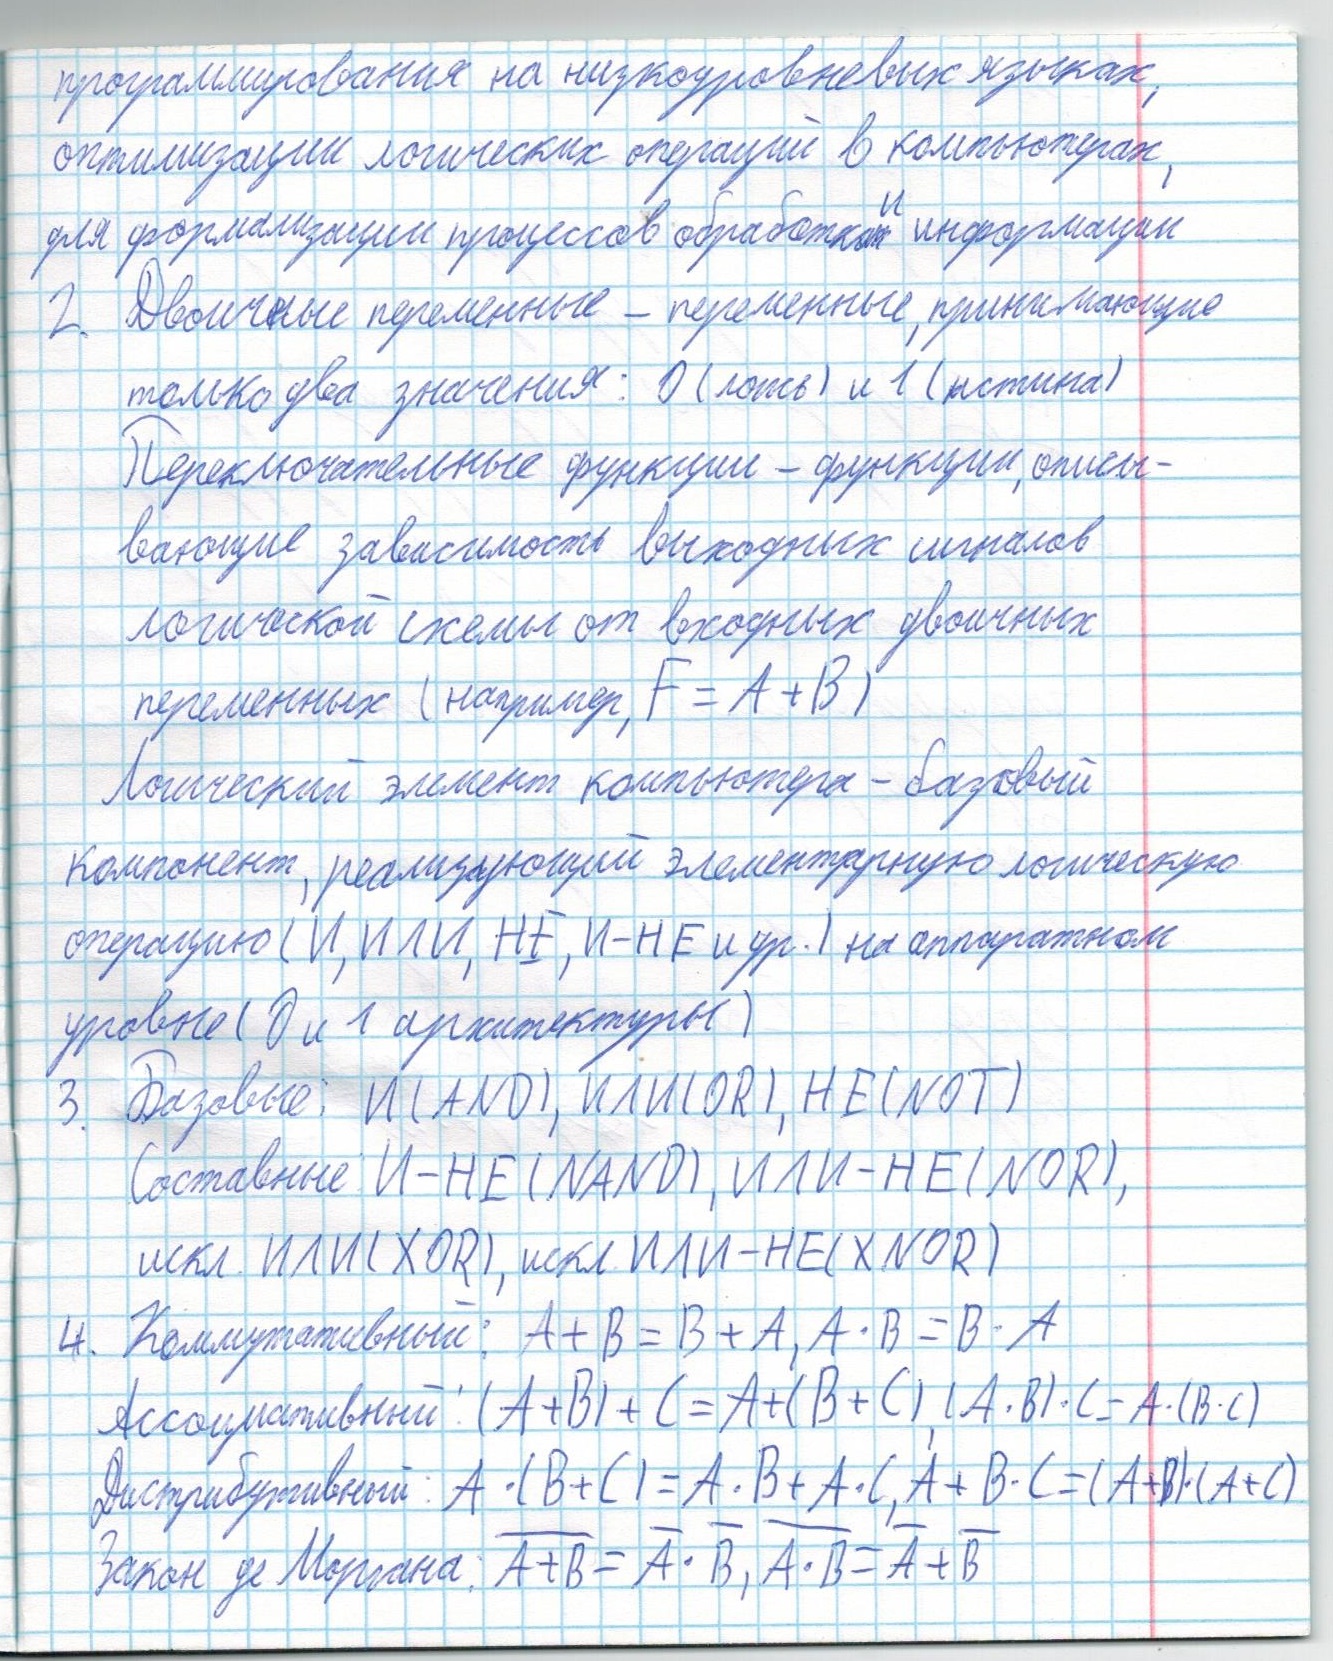 программирования на низкоуровневых языках,
оптимизации логических операций в компьютерах,
для формализации процессов обработки информации
2. Двоичные переменные – переменные, принимающие
только два значения: 0 (ложь) и 1 (истина)
Переключательные функции – функции, описы-
вающие зависимость выходных сигналов
логической схемы от входных двоичных
переменных (например, F = A + B)
Логический элемент компьютера – базовый
компонент, реализующий элементарную логическую
операцию (И, ИЛИ, НЕ, И-НЕ и др.) на аппаратном
уровне (0 и 1 архитектуры)
3. Базовые: И(AND), ИЛИ(OR), НЕ(NOT)
Составные: И-НЕ(NAND), ИЛИ-НЕ(NOR),
искл. ИЛИ(XOR), искл. ИЛИ-НЕ(XNOR)
4. Коммутативный: A + B = B + A, A · B = B · A
Ассоциативный: (A+B) + C = A+(B+C), (A·B)·C = A·(B·C)
Дистрибутивный: A·(B+C) = A·B + A·C, A + B·C = (A+B)·(A+C)
Закон де Моргана: A̅+̅B̅ = A̅ · B̅, A̅·̅B̅ = A̅ + B̅